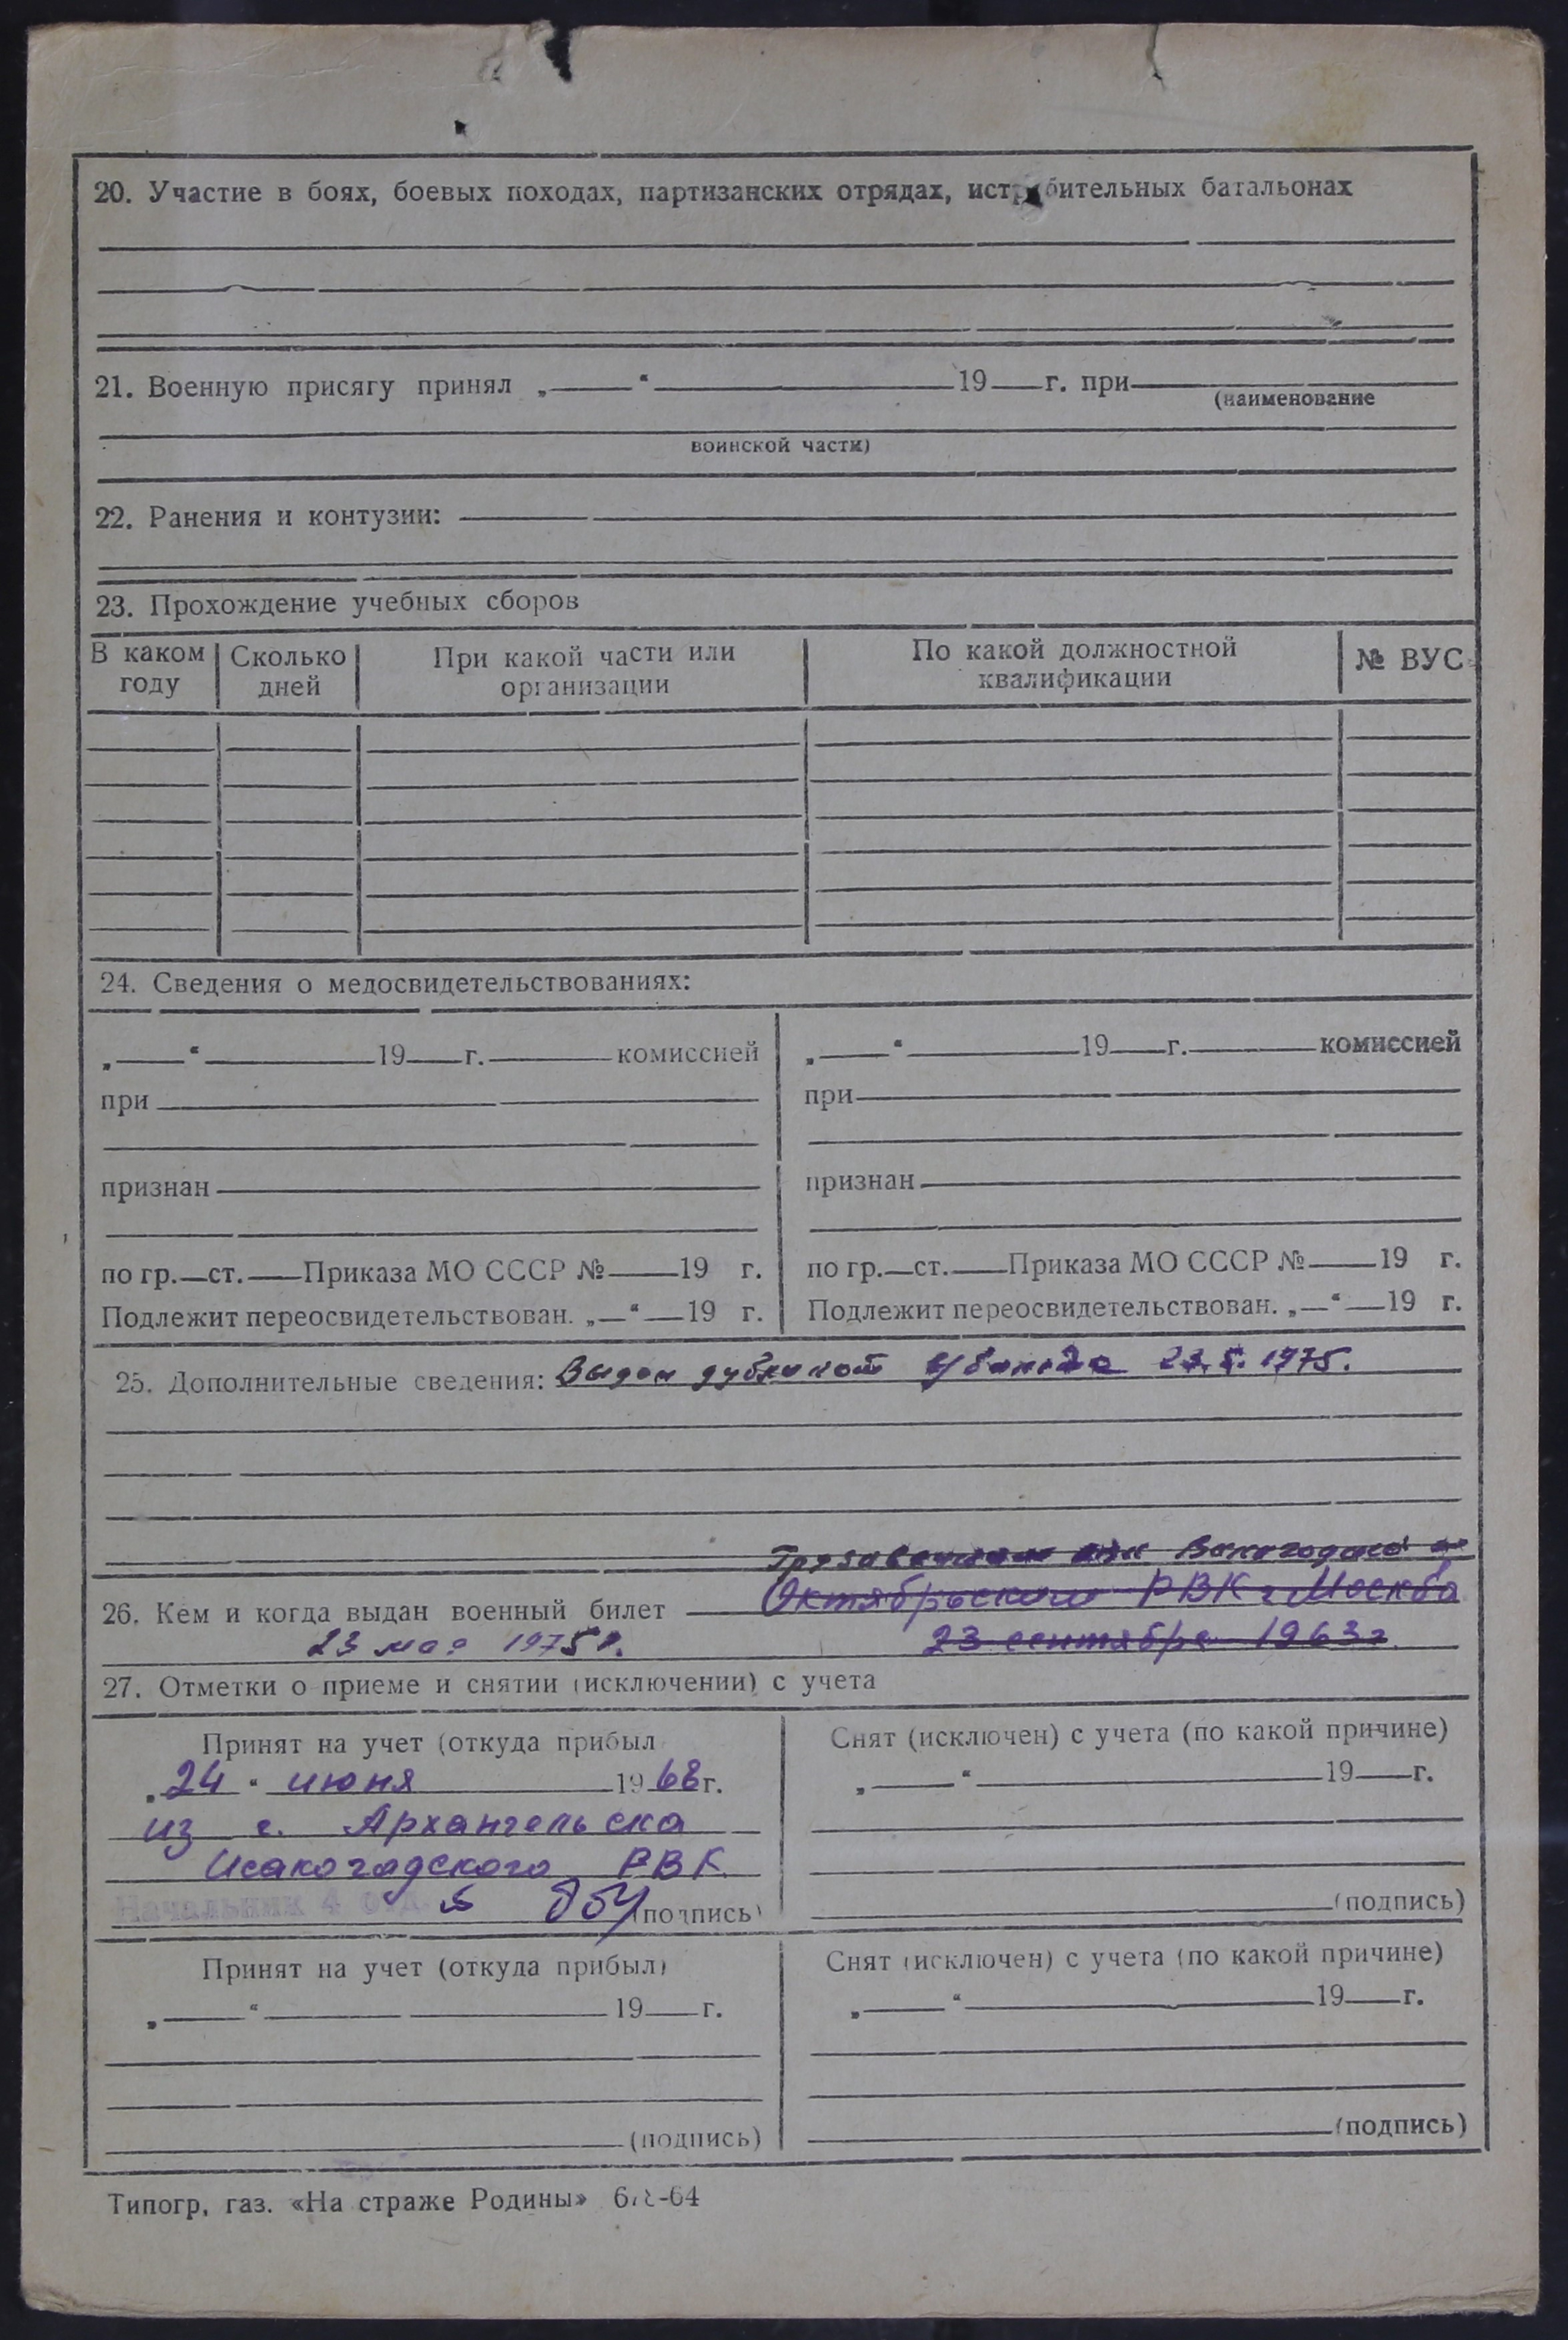 20. Участие в боях, боевых походах, партизанских отрядах, истребительных батальонах
21. Военную присягу принял „ “ 19 г. при
(наименование
воинской части)
22. Ранения и контузии:
23. Прохождение учебных сборов
В каком году Сколько дней При какой части или организации По какой должностной квалификации № ВУС
24. Сведения о медосвидетельствованиях:
„ “ 19 г. комиссией
при
признан
по гр. ст. Приказа МО СССР № 19 г.
Подлежит переосвидетельствован. „ “ 19 г.
„ “ 19 г. комиссией
при
признан
по гр. ст. Приказа МО СССР № 19 г.
Подлежит переосвидетельствован. „ “ 19 г.
25. Дополнительные сведения: Выдан дубликат 1975.
Октябрьским РВК г Москва
26. Кем и когда выдан военный билет
23 мая 1975 г. 23 сентября 1963 г.
27. Отметки о приеме и снятии (исключении) с учета
Принят на учет (откуда прибыл
„24“ июня 1968 г.
из г. Архангельска
Исакогадского РВК
Начальник 4 отд. (подпись)
Снят (исключен) с учета (по какой причине)
„ “ 19 г.
(подпись)
Принят на учет (откуда прибыл)
„ “ 19 г.
(подпись)
Снят (исключен) с учета (по какой причине)
„ “ 19 г.
(подпись)
Типогр, газ. «На страже Родины»